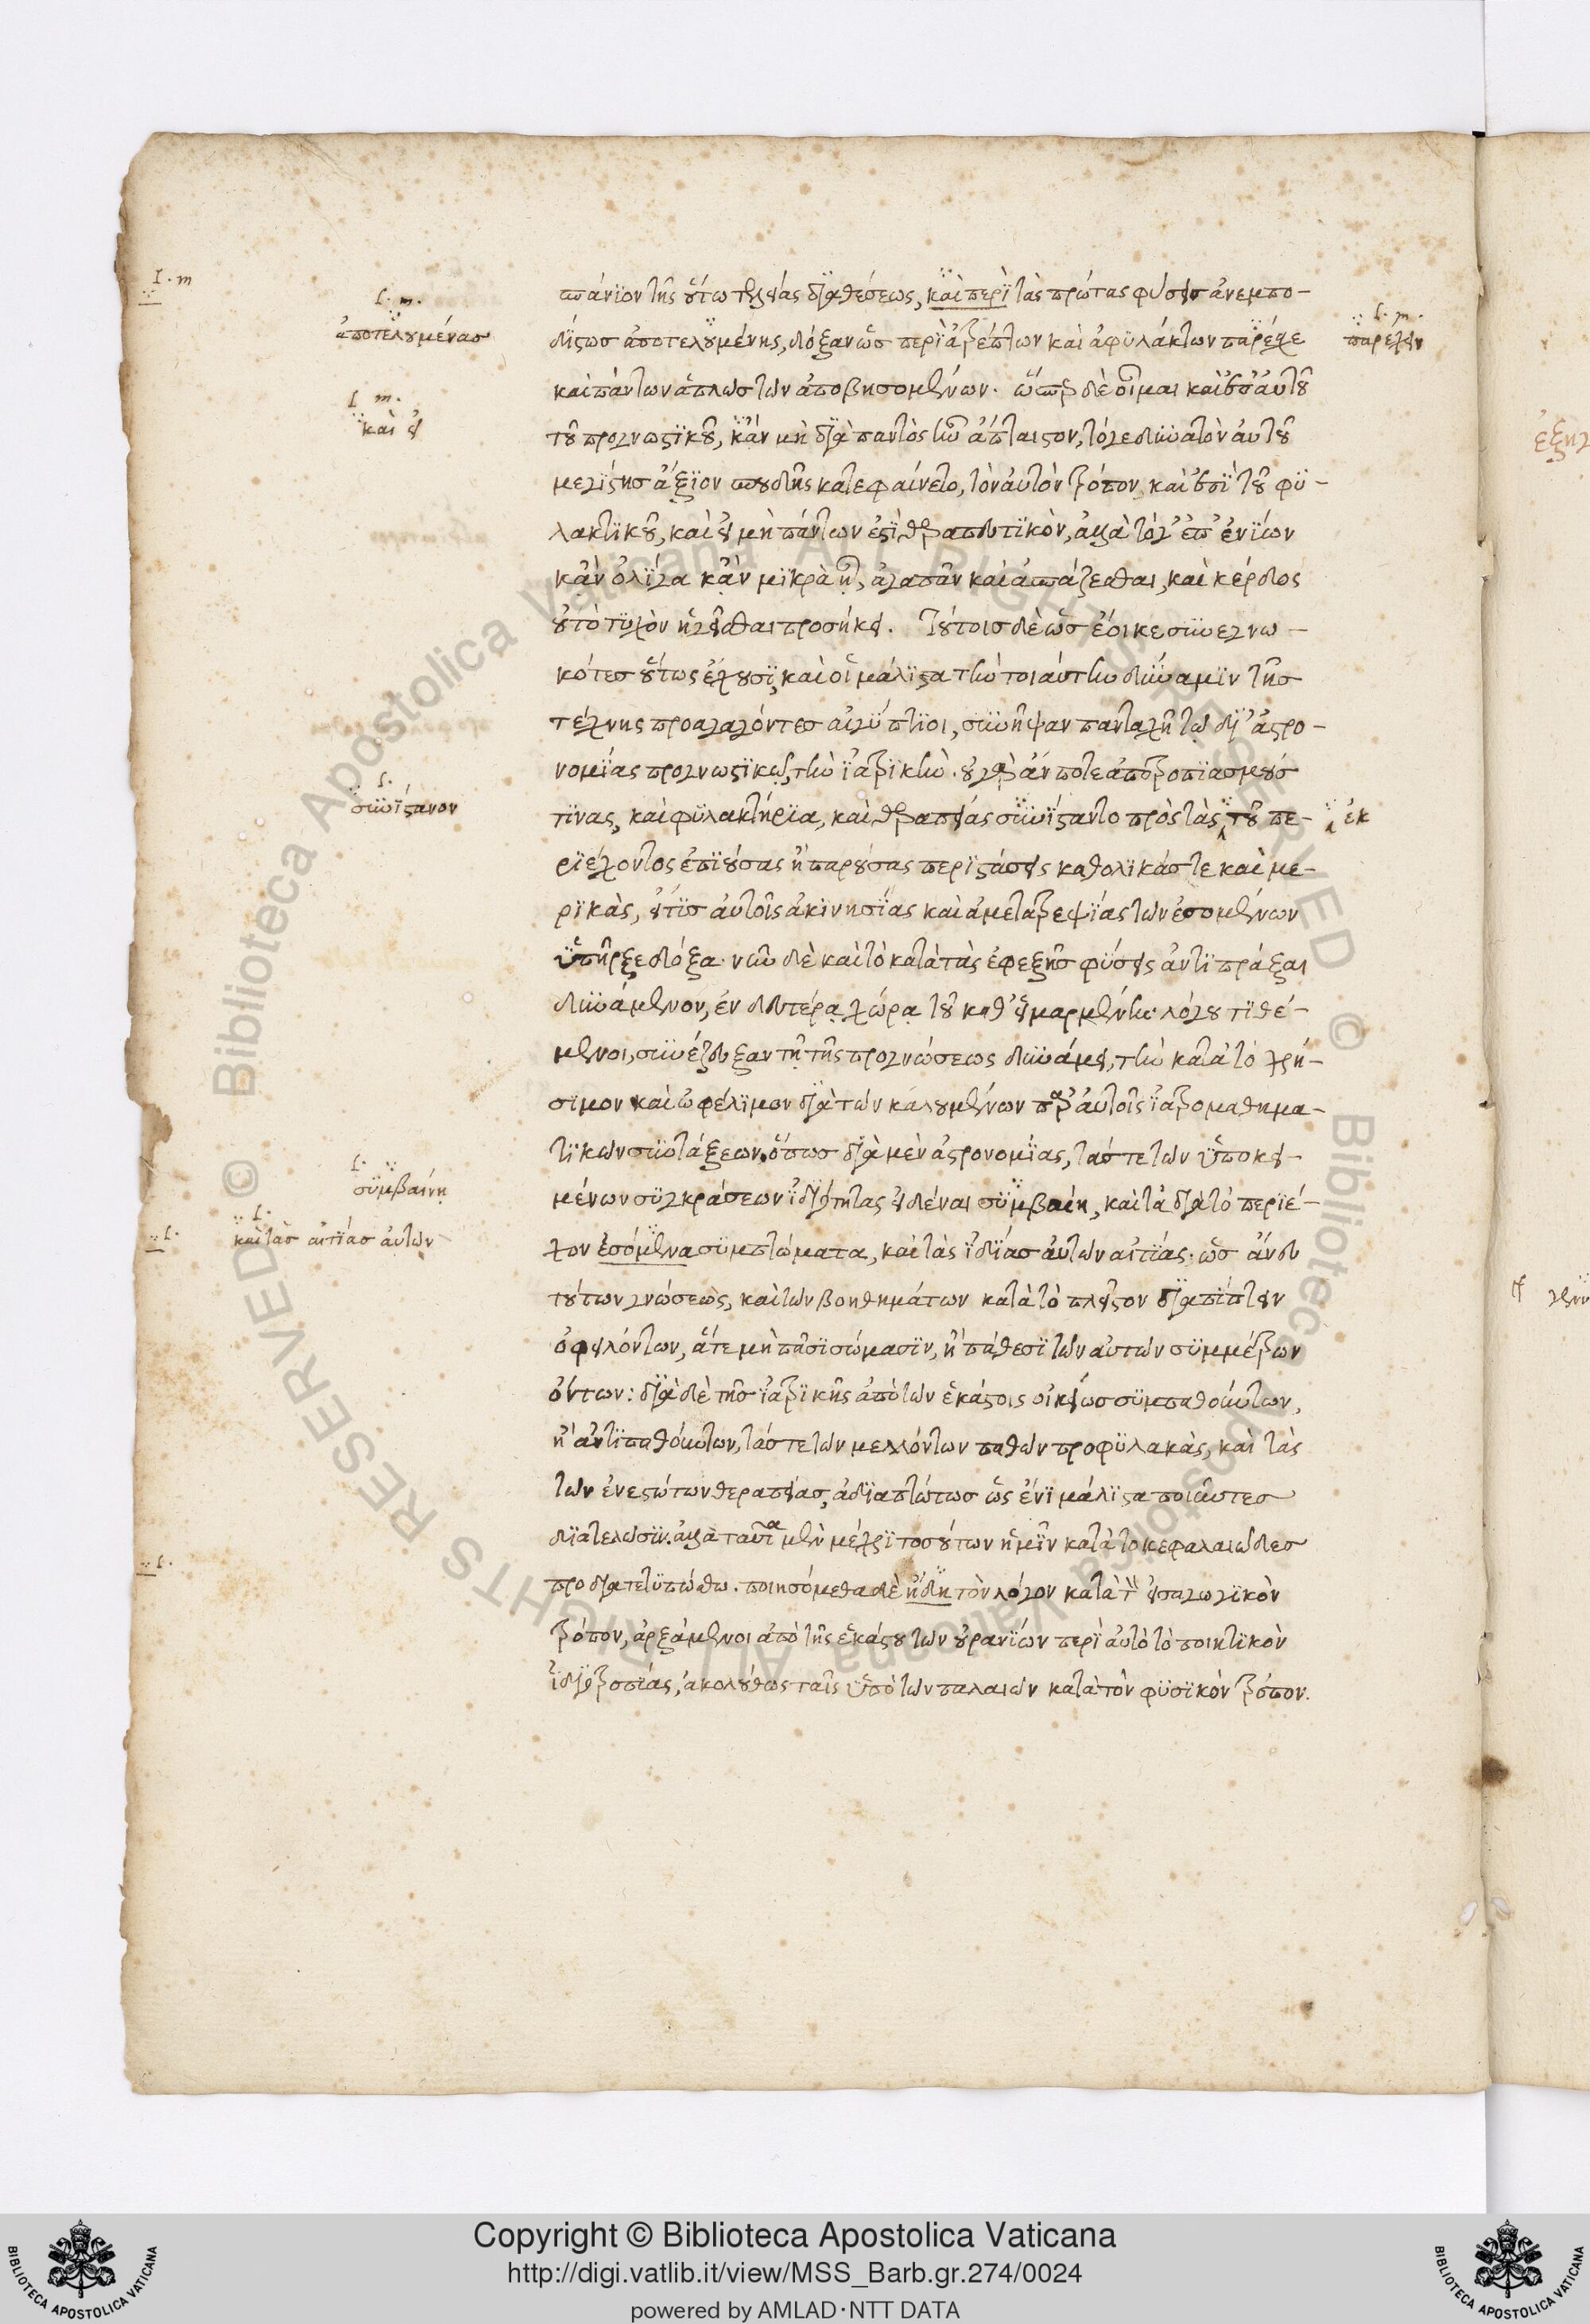 σπάνιον τῆς οὕτω τελείας διαθέσεως, καὶ περὶ τὰς πρώτας φύσεις ἀνεμπο-
δίστως ἀποτελουμένης, δόξαν ὡς περὶ ἀτρέπτων καὶ ἀφυλάκτων παρέσχε
καὶ πάντων ἁπλῶς τῶν ἀποβησομένων. ὥσπερ δὲ οἶμαι καὶ ἐπ' αὐτοῦ
τοῦ προγνωστικοῦ, κἂν μὴ διὰ παντὸς ἦν ἄπταιστον, τό γε δυνατὸν αὐτοῦ
μεγίστης ἄξιον σπουδῆς κατεφαίνετο, τὸν αὐτὸν τρόπον καὶ ἐπὶ τοῦ φυ-
λακτικοῦ, καὶ εἰ μὴ πάντων ἐστὶ θεραπευτικὸν, ἀλλὰ τό γ' ἐπ' ἐνίων
κἂν ὀλίγα κἂν μικρὰ ᾖ, ἀγαπᾶν καὶ ἀσπάζεσθαι, καὶ κέρδος
οὐ τὸ τυχὸν ἡγεῖσθαι προσήκει. τούτοις δὲ ὡς ἔοικε συνεγνω-
κότες οὕτως ἔχουσι, καὶ οἱ μάλιστα τὴν τοιαύτην δύναμιν τῆς
τέχνης προαγαγόντες αἰγύπτιοι, συνῆψαν πανταχῆ τῷ δι' ἀστρο-
νομίας προγνωστικῷ, τὴν ἰατρικήν. οὐ γὰρ ἄν ποτε ἀποτροπιασμούς
τινας, καὶ φυλακτήρια, καὶ θεραπείας συνίσταντο πρὸς τὰς τοῦ πε-
ριέχοντος ἐπιούσας ἢ παρούσας περιστάσεις καθολικάς τε καὶ με-
ρικὰς, εἴ τις αὐτοῖς ἀκινησίας καὶ ἀμετατρεψίας τῶν ἐσομένων
ὑπῆρξε δόξα. νῦν δὲ καὶ τὸ κατὰ τὰς ἐφεξῆς φύσεις ἀντιπρᾶξαι
δυνάμενον, ἐν δευτέρᾳ χώρᾳ τοῦ καθ' εἱμαρμένην λόγου τιθέ-
μενοι, συνέζευξαν τῇ τῆς προγνώσεως δυνάμει, τὴν κατὰ τὸ χρή-
σιμον καὶ ὠφέλιμον διὰ τῶν καλουμένων παρ' αὐτοῖς ἰατρομαθημα-
τικῶν συντάξεων. ὅπως διὰ μὲν ἀστρονομίας, τάς τε τῶν ὑποκει-
μένων συγκράσεων ἰδιότητας εἰδέναι συμβαίη, καὶ τὰ διὰ τὸ περιέ-
χον ἐσόμενα συμπτώματα, καὶ τὰς ἰδίας αὐτῶν αἰτίας. ὡς ἄνευ
τούτων γνώσεως, καὶ τῶν βοηθημάτων κατὰ τὸ πλεῖστον διαπίπτειν
ὀφειλόντων, ἅτε μὴ πᾶσι σώμασιν, ἢ πάθεσι τῶν αὐτῶν συμμέτρων
ὄντων: διὰ δὲ τῆς ἰατρικῆς ἀπὸ τῶν ἑκάστοις οἰκείως συμπαθούντων,
ἢ ἀντιπαθούντων, τάς τε τῶν μελλόντων παθῶν προφυλακὰς, καὶ τὰς
τῶν ἐνεστώτων θεραπείας, ἀδιαπτώτως ὡς ἔνι μάλιστα ποιοῦντες
διατελῶσιν. ἀλλὰ ταῦτα μὲν μέχρι τοσούτων ἡμῖν κατὰ τὸ κεφαλαιῶδες
προδιατετυπώσθω. ποιησόμεθα δὲ ἤδη τὸν λόγον κατὰ τὸν εἰσαγωγικὸν
τρόπον, ἀρξάμενοι ἀπὸ τῆς ἑκάστου τῶν οὐρανίων περὶ αὐτὸ τὸ ποιητικὸν
ἰδιοτροπίας, ἀκολούθως ταῖς ὑπὸ τῶν παλαιῶν κατὰ τὸν φυσικὸν τρόπον.
l. m
l. m.
ἀποτελουμένας
l. m.
παρέχειν
l m.
καὶ εἰ
l.
συνίστανον
ἐκ
l.
συμβαίνῃ
l.
καὶ τὰς αἰτίας αὐτῶν
l.
l.
Copyright © Biblioteca Apostolica Vaticana
http://digi.vatlib.it/view/MSS_Barb.gr.274/0024
powered by AMLAD·NTT DATA
BIBLIOTECA APOSTOLICA VATICANA
BIBLIOTECA APOSTOLICA VATICANA